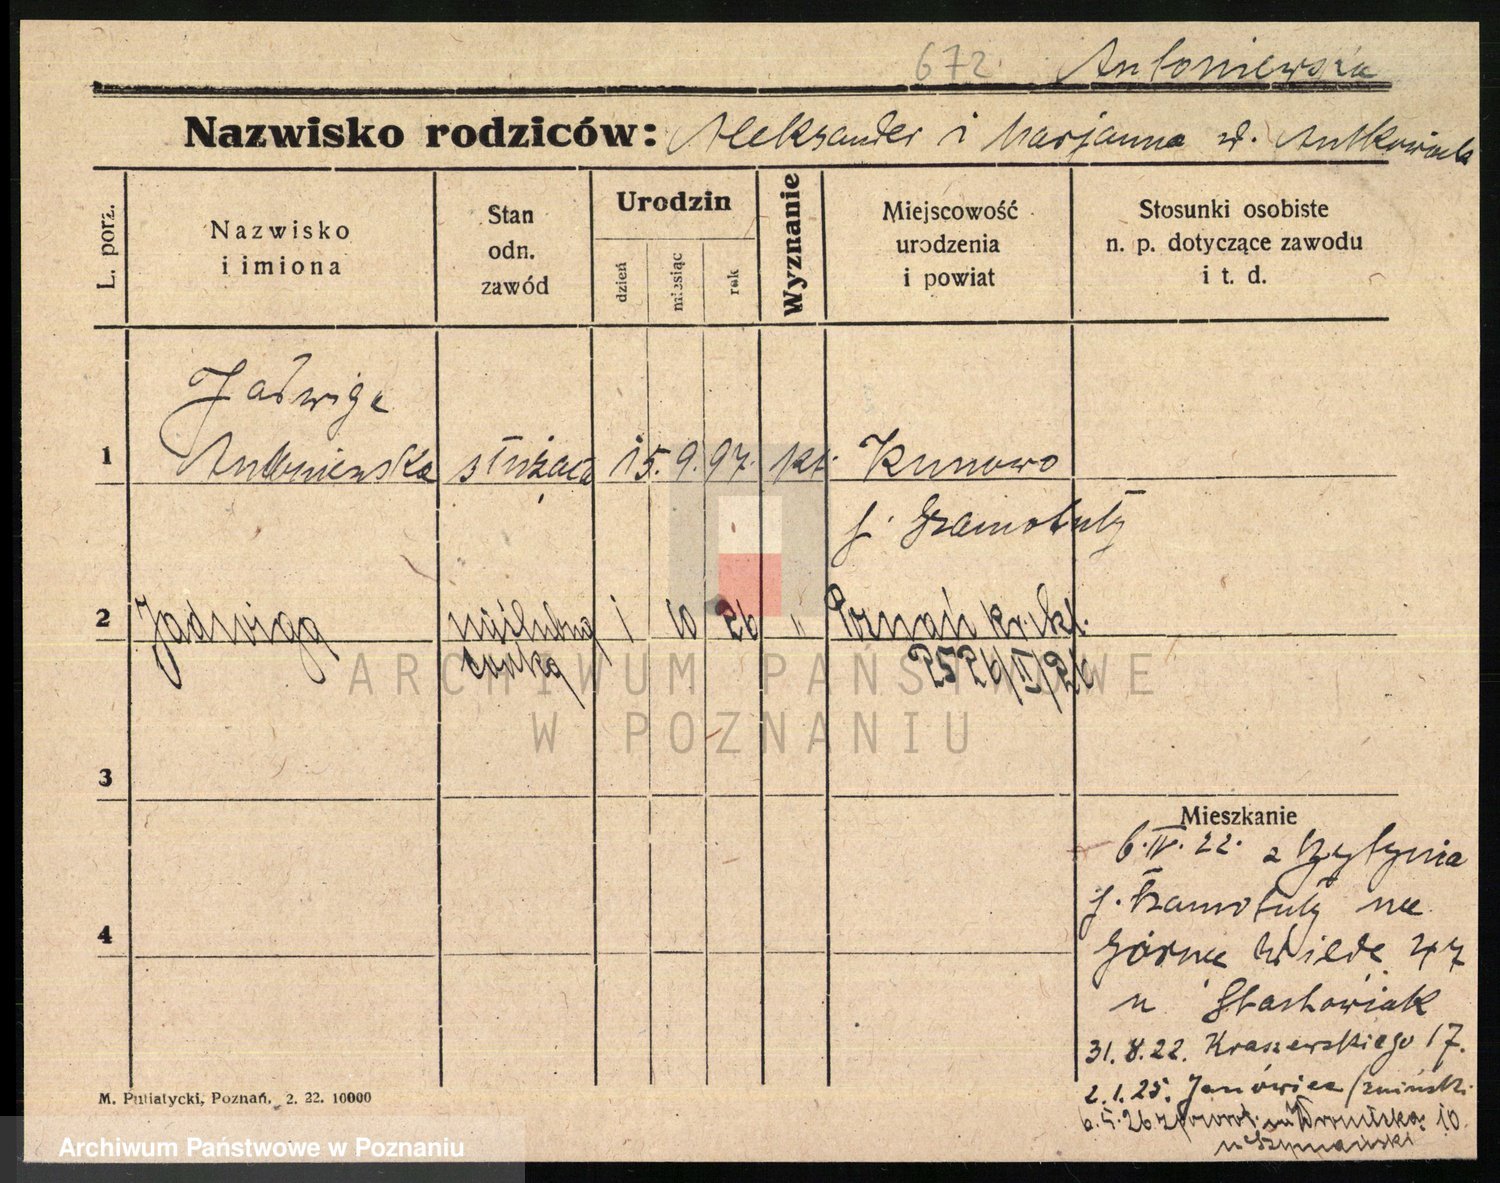 672. Antoniewska
Nazwisko rodziców: Aleksander i Marjanna d. Antkowiak
L. porz.
Nazwisko
i imiona
Stan
odn.
zawód
Urodzin
dzień
miesiąc
rok
Wyznanie
Miejscowość
urodzenia
i powiat
Stosunki osobiste
n. p. dotyczące zawodu
i t. d.
Jadwiga
1 Antoniewska służąca 15. 9. 97. kt. Kunowo
p. Szamotuły
2 Jadwiga nieślubna 1 10 26 " Poznań
córka
ARCHIWUM PAŃSTWOWE
W POZNANIU
3
4
Mieszkanie
6.IV.22. z
p. Szamotuły na
Górna Wilda 47
u Stachowiak
31.8.22. Kraszewskiego 17.
2.1.25. Janówiec
6.5.26 Wroniecka 10
u Szymański
M. Putiatycki, Poznań, 2. 22. 10000
Archiwum Państwowe w Poznaniu